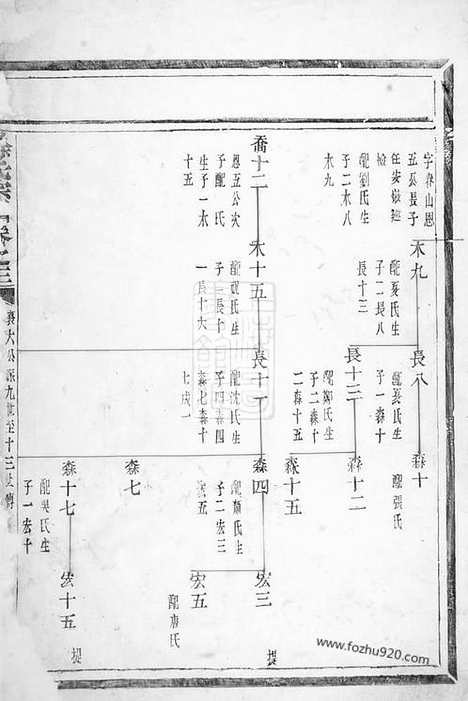 字春山恩
五公長子
任安撫廵
檢
配劉氏生
子二木八
木九
木九
配夏氏生
子二長八
長十三
長八
配夏氏生
子一森十
森十
配張氏
長十三
配鄭氏生
子二森十
二森十五
森十二
森十五
喬十二
恩五公次
子配氏
生子一木
十五
木十五
氏生
子二長十
一長十六
長十一
配沈氏生
子四森四
森七森十
森四
配顏氏生
子二宏三
宏五
宏三
提
宏五
配唐氏
森七
森十七
配吳氏生
子一宏十
宏十五
提
九世至十三世傳
www.fozhu920.com